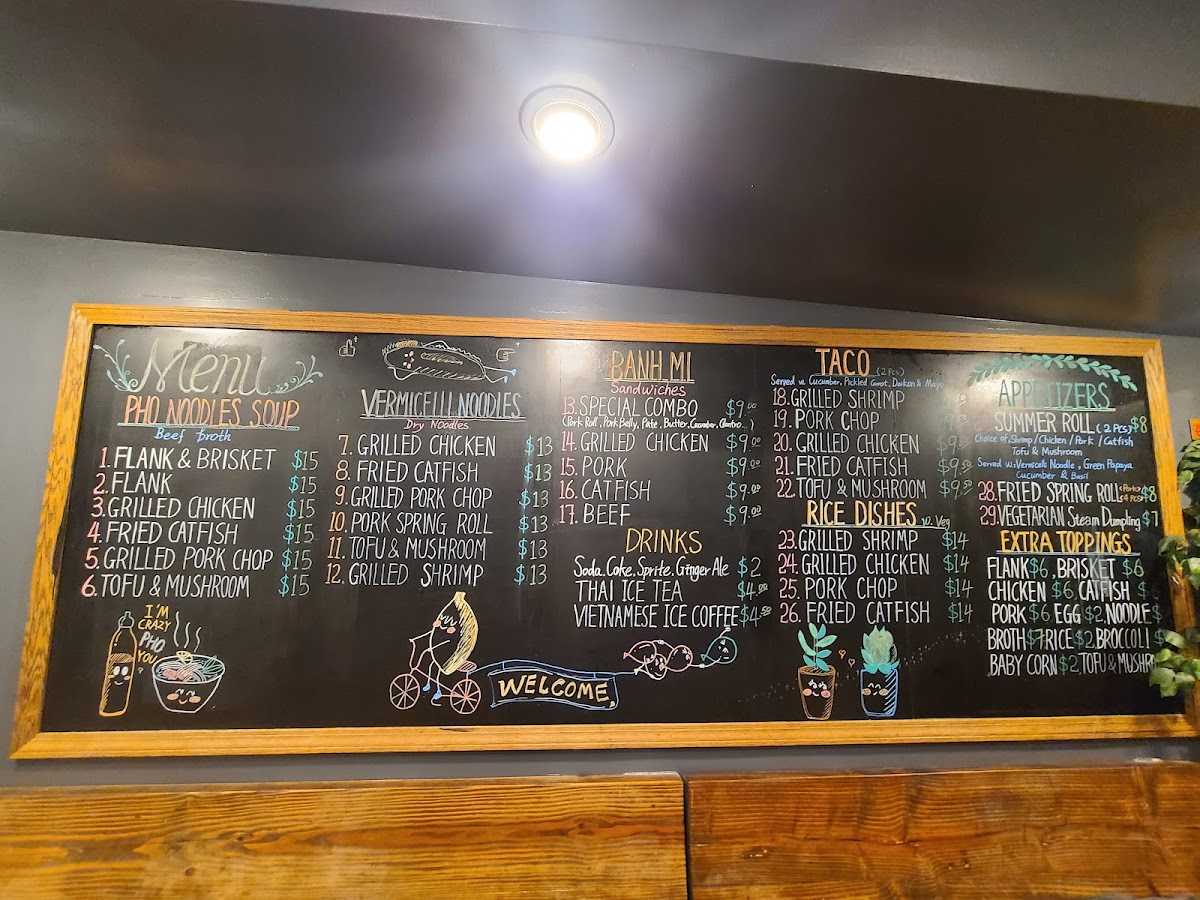 Menu
PHO NOODLES SOUP
Beef Broth
1. FLANK & BRISKET $15
2. FLANK $15
3. GRILLED CHICKEN $15
4. FRIED CATFISH $15
5. GRILLED PORK CHOP $15
6. TOFU & MUSHROOM $15
I'M
CRAZY
PHO
YOU
VERMICELLI NOODLES
Dry Noodles
7. GRILLED CHICKEN $13
8. FRIED CATFISH $13
9. GRILLED PORK CHOP $13
10. PORK SPRING ROLL $13
11. TOFU & MUSHROOM $13
12. GRILLED SHRIMP $13
WELCOME
BANH MI
Sandwiches
13. SPECIAL COMBO $9.00
(Pork Roll, Pork Belly, Pate, Butter, Cucumber, Cilantro...)
14. GRILLED CHICKEN $9.00
15. PORK $9.00
16. CATFISH $9.00
17. BEEF $9.00
DRINKS
Soda. Coke, Sprite, Ginger Ale $2
THAI ICE TEA $4.00
VIETNAMESE ICE COFFEE $4.50
TACO (2 Pcs)
Served w. Cucumber, Pickled Carrot, Daikon & Mayo
18. GRILLED SHRIMP
19. PORK CHOP
20. GRILLED CHICKEN
21. FRIED CATFISH $9.50
22. TOFU & MUSHROOM $9.50
RICE DISHES w. Veg
23. GRILLED SHRIMP $14
24. GRILLED CHICKEN $14
25. PORK CHOP $14
26. FRIED CATFISH $14
APPETIZERS
SUMMER ROLL (2 Pcs) $8
Choice of: Shrimp / Chicken / Pork / Catfish
Tofu & Mushroom
Served w: Vermicelli Noodle, Green Papaya
Cucumber & Basil
28. FRIED SPRING ROLL (Pork) 4 Pcs $8
29. VEGETARIAN Steam Dumpling $7
EXTRA TOPPINGS
FLANK $6, BRISKET $6
CHICKEN $6, CATFISH $
PORK $6 EGG $2, NOODLE $
BROTH $7 RICE $2, BROCCOLI $
BABY CORN $2, TOFU & MUSHR